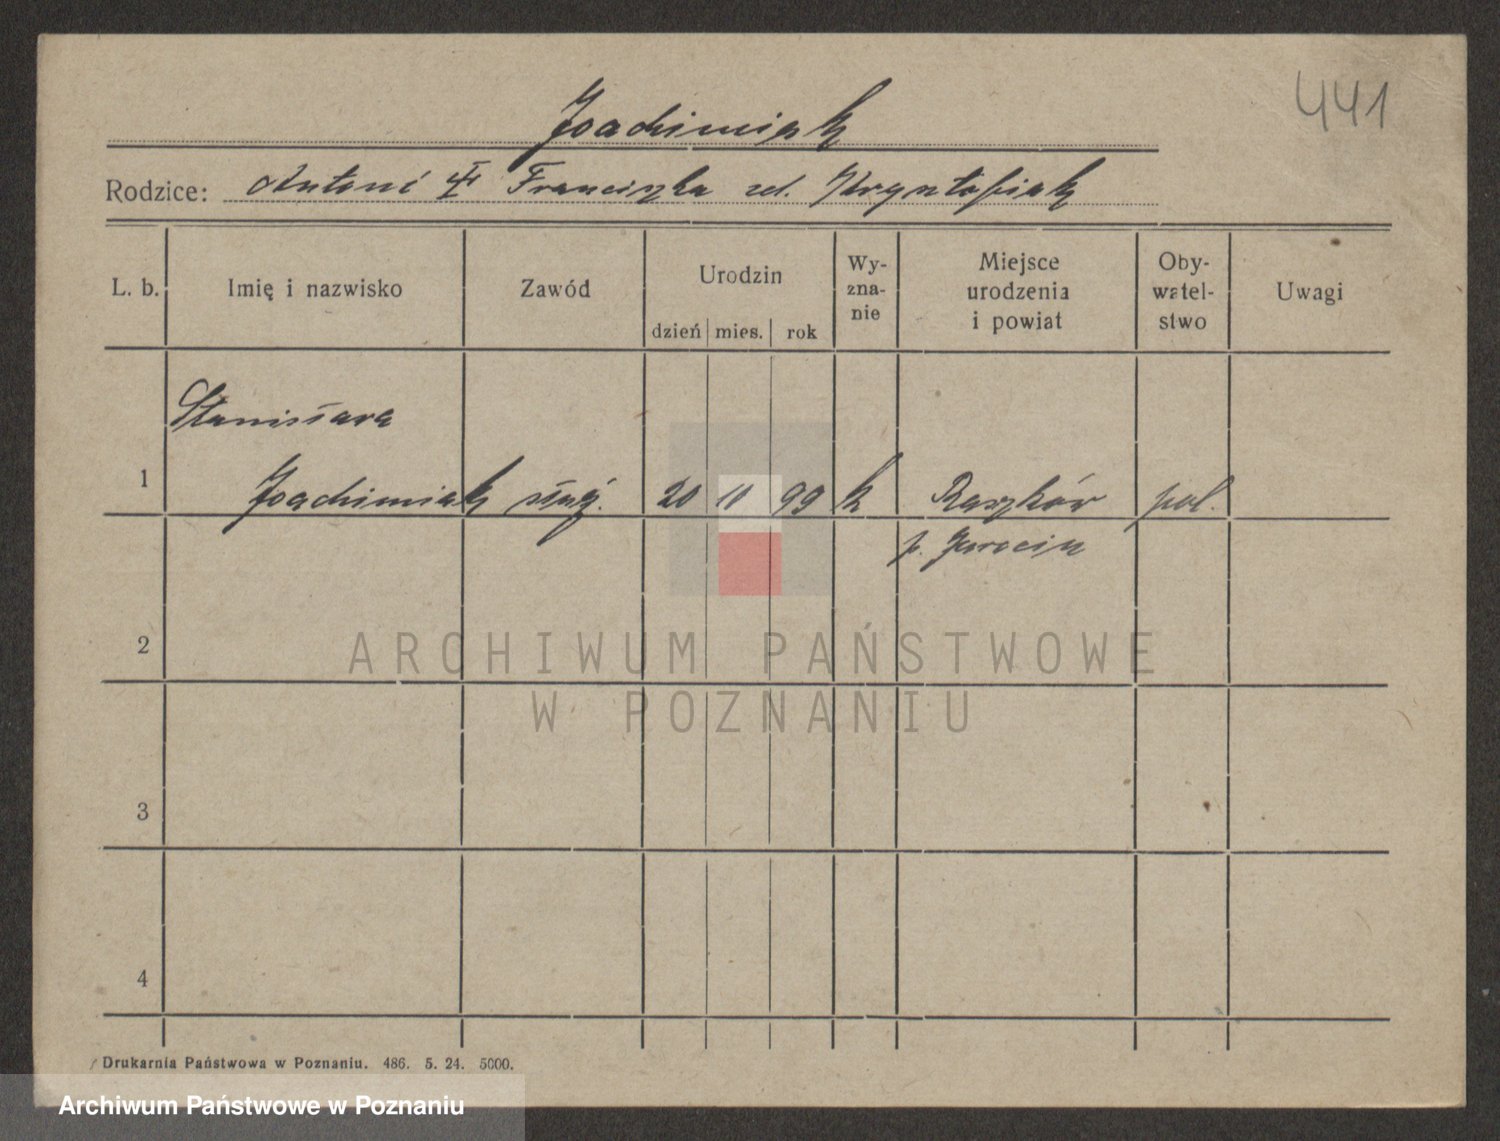 441
Joachimiak
Rodzice: Antoni ☦ Franciszka zd. Krysztofiak
L. b. Imię i nazwisko Zawód Urodzin dzień mies. rok Wy-zna-nie Miejsce urodzenia i powiat Oby-watel-stwo Uwagi
Stanisława
1 Joachimiak służ. 20 11 99 k Raszków pol.
p. Jarocin
2
ARCHIWUM PAŃSTWOWE
W POZNANIU
3
4
Drukarnia Państwowa w Poznaniu. 486. 5. 24. 5000.
Archiwum Państwowe w Poznaniu